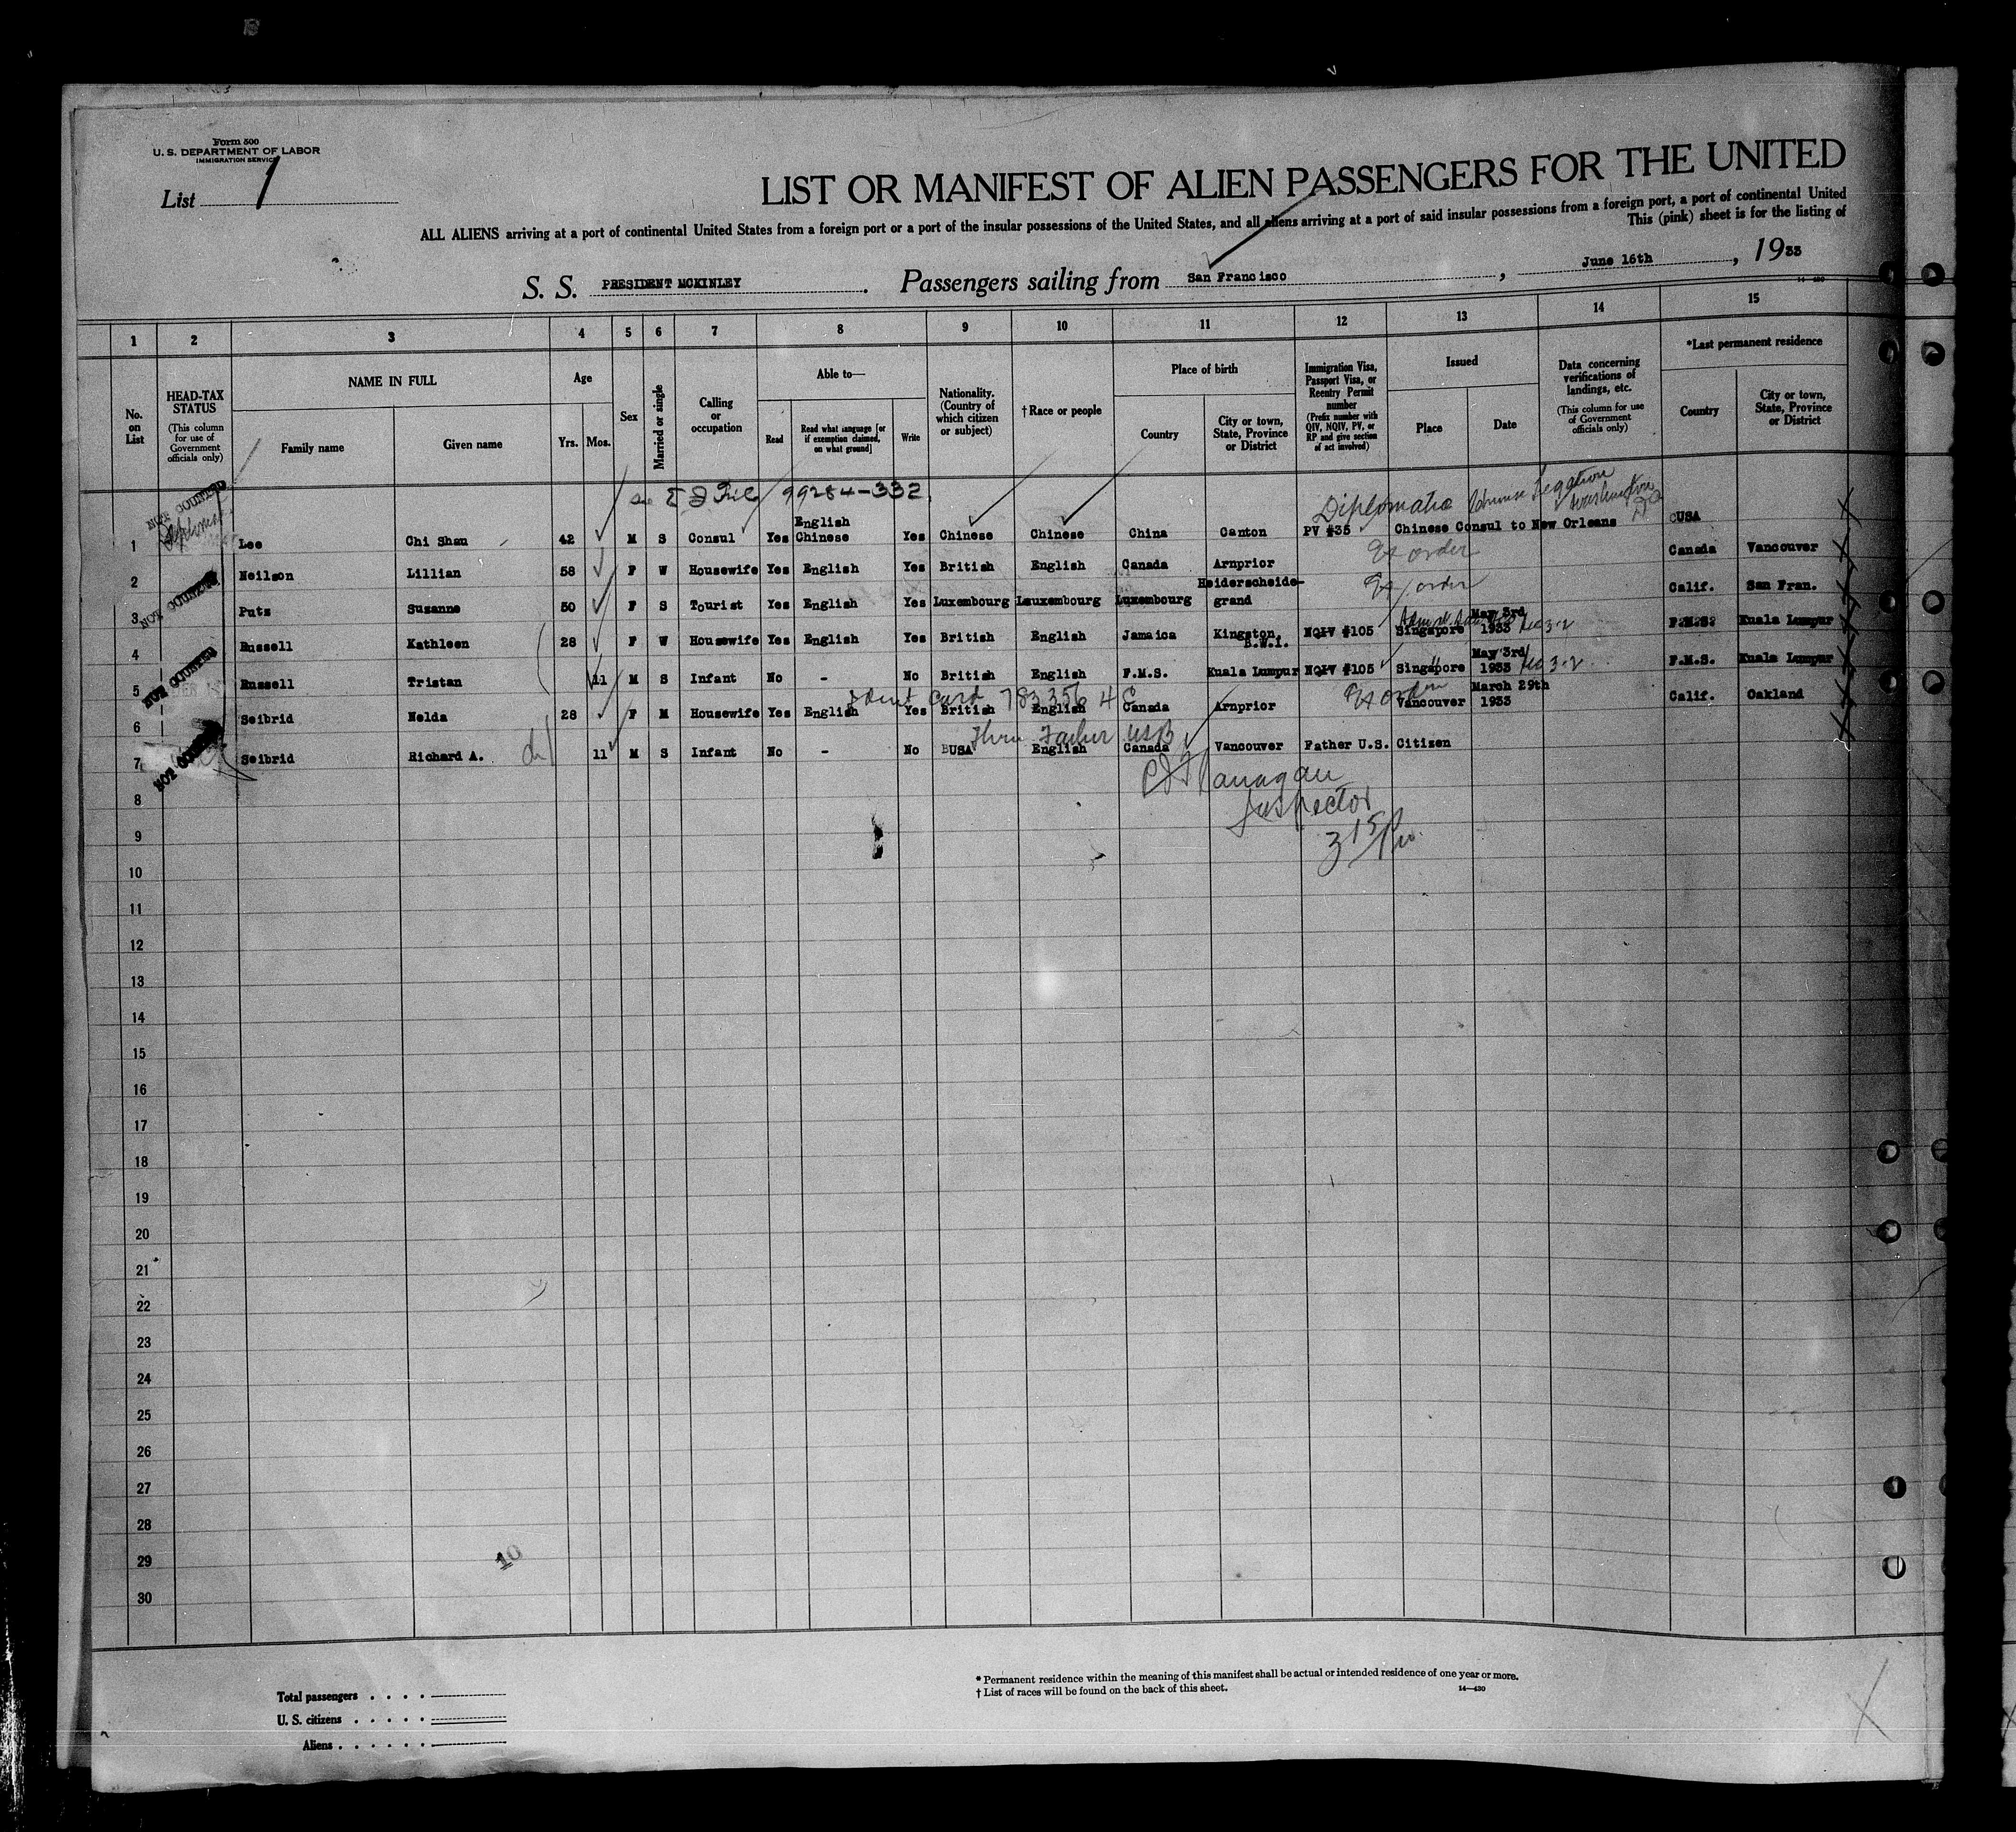 Form 500
U. S. DEPARTMENT OF LABOR
IMMIGRATION SERVICE
List 1
LIST OR MANIFEST OF ALIEN PASSENGERS FOR THE UNITED
ALL ALIENS arriving at a port of continental United States from a foreign port or a port of the insular possessions of the United States, and all aliens arriving at a port of said insular possessions from a foreign port, a port of continental United
This (pink) sheet is for the listing of
S. S. PRESIDENT MCKINLEY. Passengers sailing from San Francisco, June 16th, 1933
14—430
1 2 3 4 5 6 7 8 9 10 11 12 13 14 15
No. on List
HEAD-TAX STATUS (This column for use of Government officials only)
NAME IN FULL
Family name
Given name
Age
Yrs. Mos.
Sex
Married or single
Calling or occupation
Able to—
Read
Read what language [or if exemption claimed, on what ground]
Write
Nationality. (Country of which citizen or subject)
† Race or people
Place of birth
Country
City or town, State, Province or District
Immigration Visa, Passport Visa, or Reentry Permit number (Prefix number with QIV, NQIV, PV, or RP and give section of act involved)
Issued
Place
Date
Data concerning verifications of landings, etc. (This column for use of Government officials only)
*Last permanent residence
Country
City or town, State, Province or District
99284-332
Diplomatic Chinese Legation Washington DC
NOT COUNTED
1 Lee Chi Shan 42 M S Consul Yes English Chinese Yes Chinese Chinese China Canton PV #35 Chinese Consul to New Orleans USA
2 Neilson Lillian 58 F W Housewife Yes English Yes British English Canada Arnprior Canada Vancouver
NOT COUNTED
3 Puts Suzanne 50 F S Tourist Yes English Yes Luxembourg Leuxembourg Luxembourg Heiderscheide-grand Calif. San Fran.
4 Russell Kathleen 28 F W Housewife Yes English Yes British English Jamaica Kingston, B.W.I. NQIV #105 Singapore May 3rd 1933 F.M.S. Kuala Lumpur
NOT COUNTED
5 Russell Tristan 11 M S Infant No - No British English F.M.S. Kuala Lumpur NQIV #105 Singapore May 3rd 1933 F.M.S. Kuala Lumpur
6 Seibrid Nelda 28 F M Housewife Yes English Yes British English Canada Arnprior Vancouver March 29th 1933 Calif. Oakland
NOT COUNTED
7 Seibrid Richard A. 11 M S Infant No - No USA English Canada Vancouver Father U.S. Citizen
Inspector
8
9
10
11
12
13
14
15
16
17
18
19
20
21
22
23
24
25
26
27
28
29
30
10
Total passengers
U. S. citizens
Aliens
* Permanent residence within the meaning of this manifest shall be actual or intended residence of one year or more.
† List of races will be found on the back of this sheet.
14—430